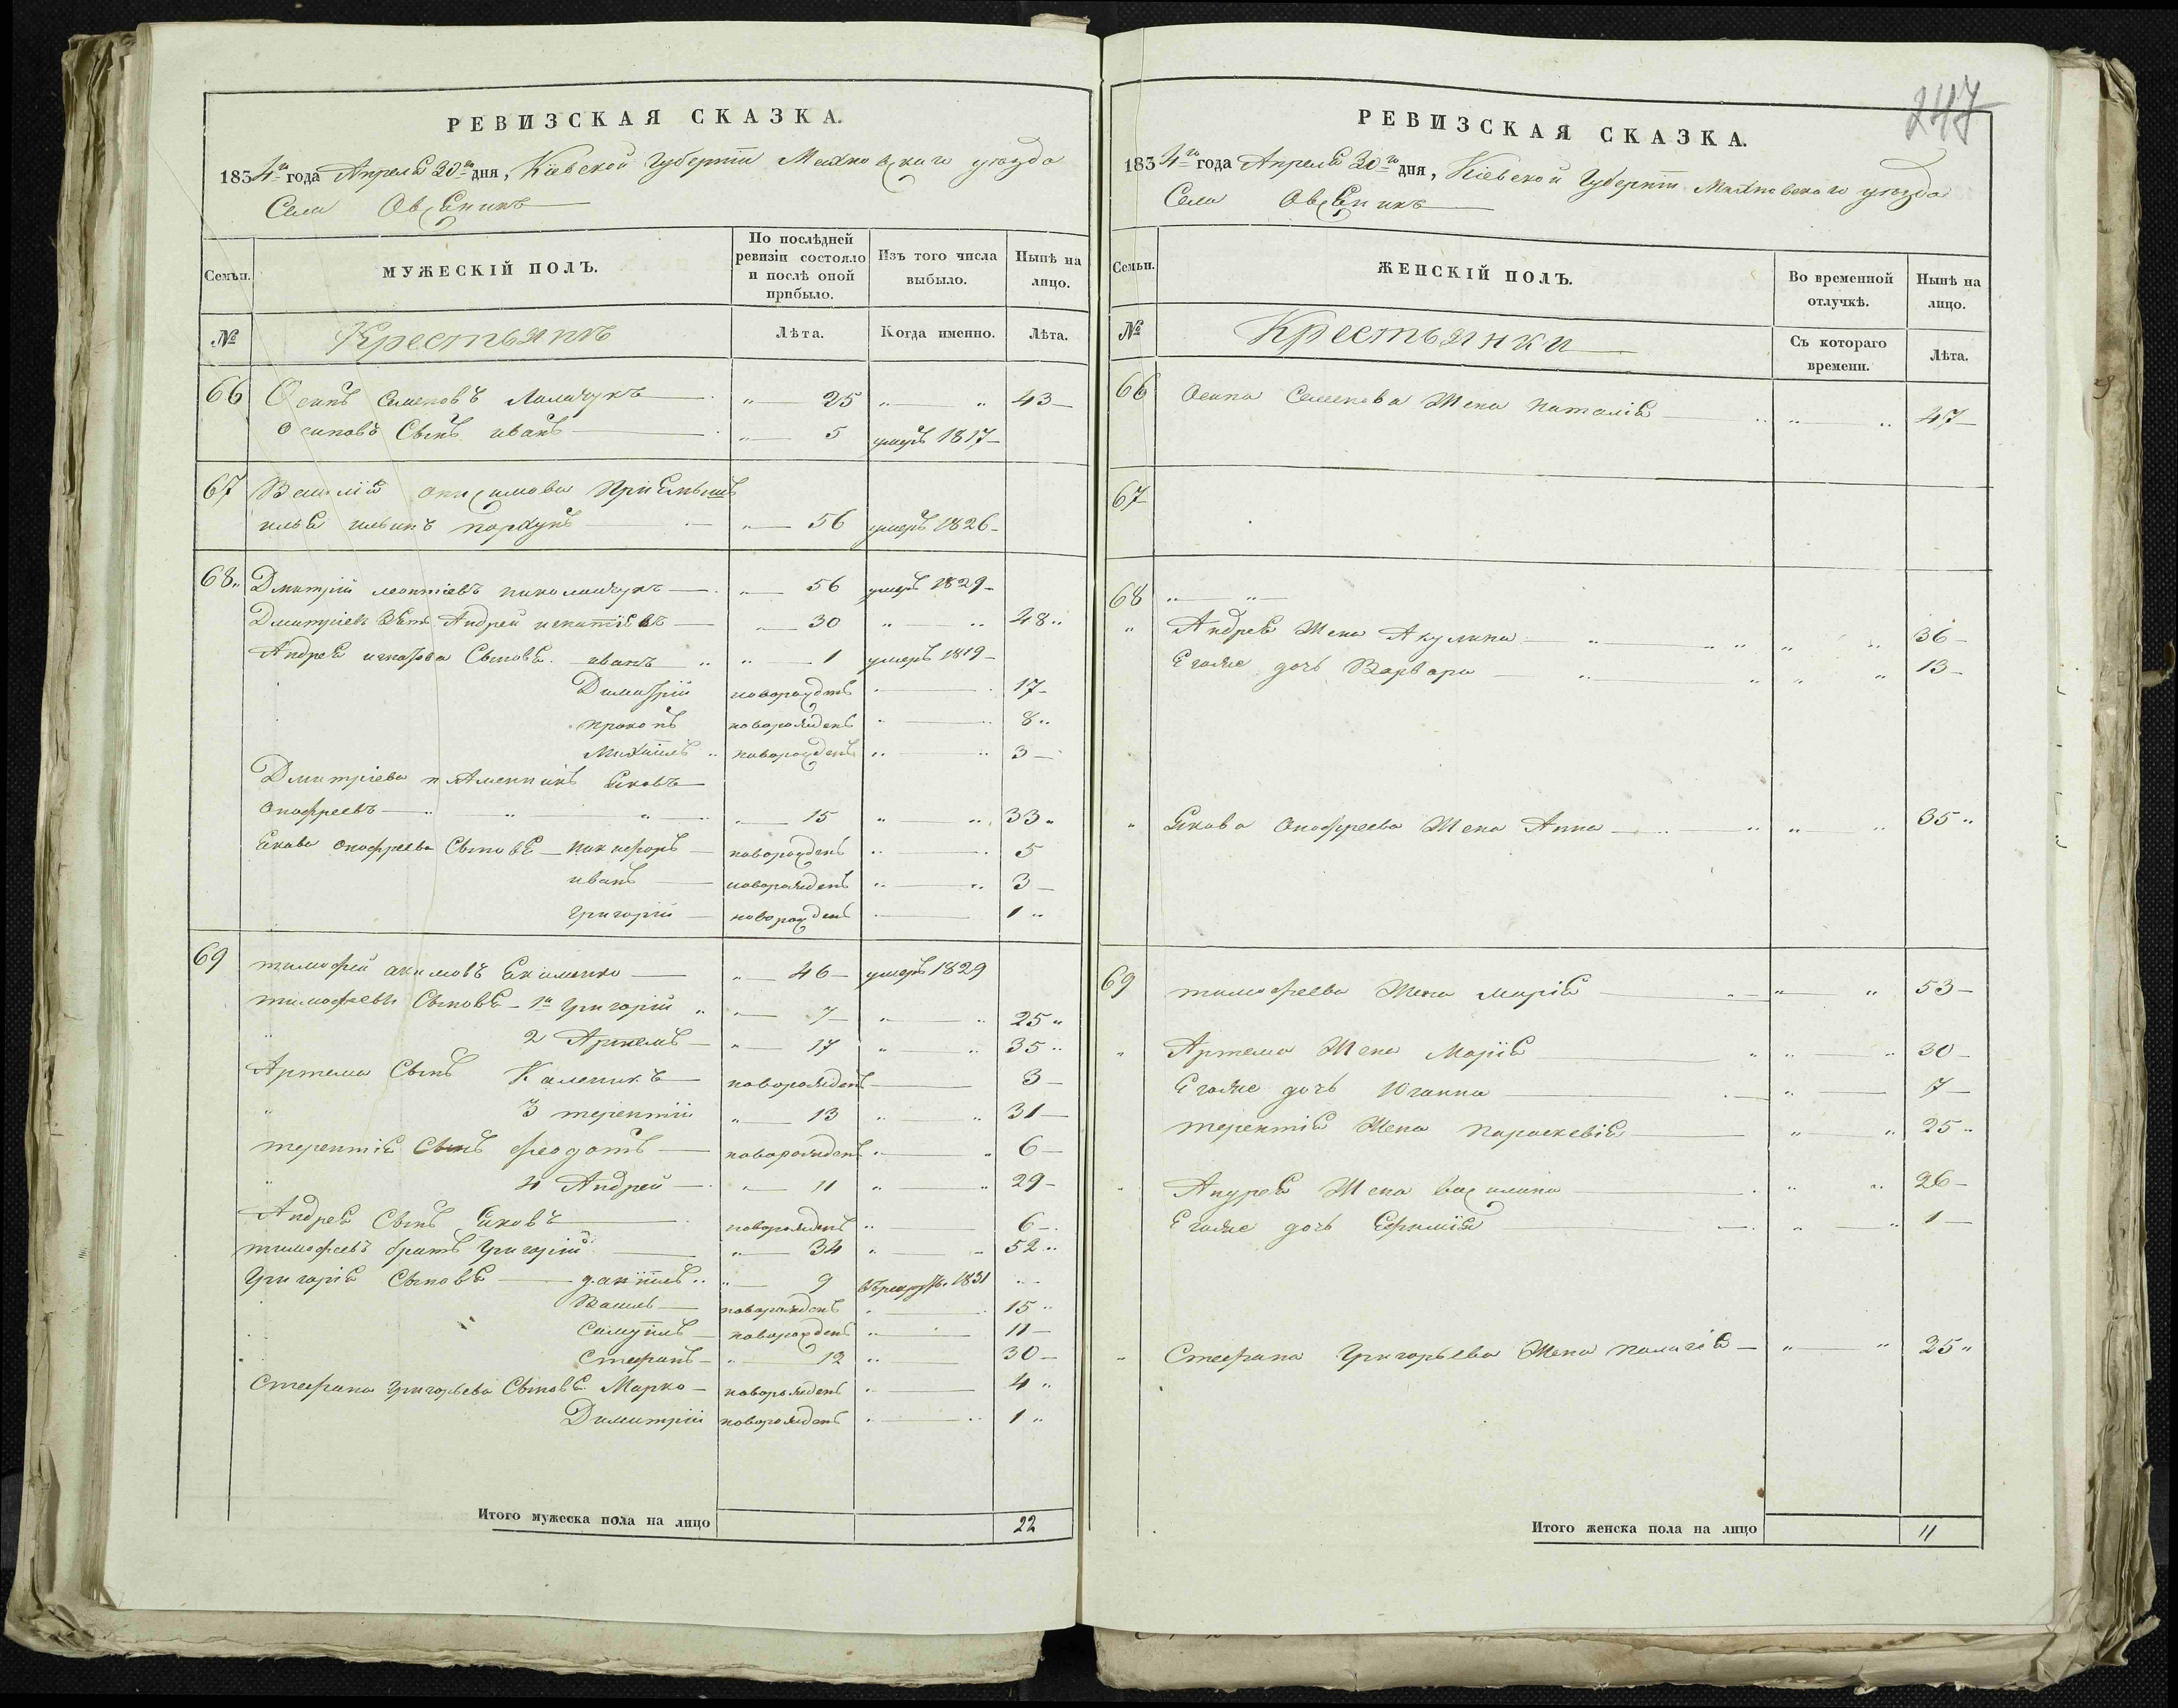 РЕВИЗСКАЯ СКАЗКА.
1834го года Апреля 30го дня, Кіевской Губерніи Махновскаго уѣзда
Села Овсяникъ
Семьи. МУЖЕСКІЙ ПОЛЪ. По послѣдней ревизіи состояло и послѣ оной прибыло. Изъ того числа выбыло. Нынѣ на лицо.
№ Лѣта. Когда именно. Лѣта.
66 Осипъ Семеновъ 25 43
Осиповъ Сынъ иванъ 5 умеръ 1817
67 Василія Приемышъ
илья ильинъ 56 умеръ 1826
68 Дмитрій леонтіевъ 56 умеръ 1829
Андрей игнатіевъ 30 48
Андрея Сыновья иванъ 1 умеръ 1819
Димитрій новорожденъ 17
прокопъ новорожденъ 8
Михаилъ новорожденъ 3
Дмитріева племенникъ Яковъ
Онофреевъ 15 33
Якова Онофреева Сыновья никифоръ новорожденъ 5
иванъ новорожденъ 3
григорій новорожденъ 1
69 тимофей акимовъ Якименко 46 умеръ 1829
тимофеевы Сыновья 1й григорій 7 25
2 Артемъ 17 35
Артема Сынъ Каленикъ новорожденъ 3
3 терентій 13 31
терентія Сынъ феодотъ новорожденъ 6
4 Андрей 11 29
Андрея Сынъ Яковъ новорожденъ 6
тимофеевъ братъ григорій 34 52
григорія Сыновья даніилъ 9 1831
Василь новорожденъ 15
Самуилъ новорожденъ 11
Стефанъ 12 30
Стефана григорьева Сыновья Марко новорожденъ 4
Димитрій новорожденъ 1
Итого мужеска пола на лицо 22
247
РЕВИЗСКАЯ СКАЗКА.
1834го года Апреля 30го дня, Кіевской Губерніи Махновскаго уѣзда
Села Овсяникъ
Семьи. ЖЕНСКІЙ ПОЛЪ. Во временной отлучкѣ. Нынѣ на лицо.
№ Крестьянки Съ котораго времени. Лѣта.
66 Осипа Семенова Жена наталія 47
67
68
Андрея Жена Акулина 36
Егоже дочь Варвара 13
Якова Онофреева Жена Анна 35
69 тимофеева Жена марія 53
Артема Жена Марія 30
Егоже дочь Юганна 7
терентія Жена параскевія 25
Андрея Жена василина 26
Егоже дочь Ефимія 1
Стефана григорьева Жена палагія 25
Итого женска пола на лицо 11